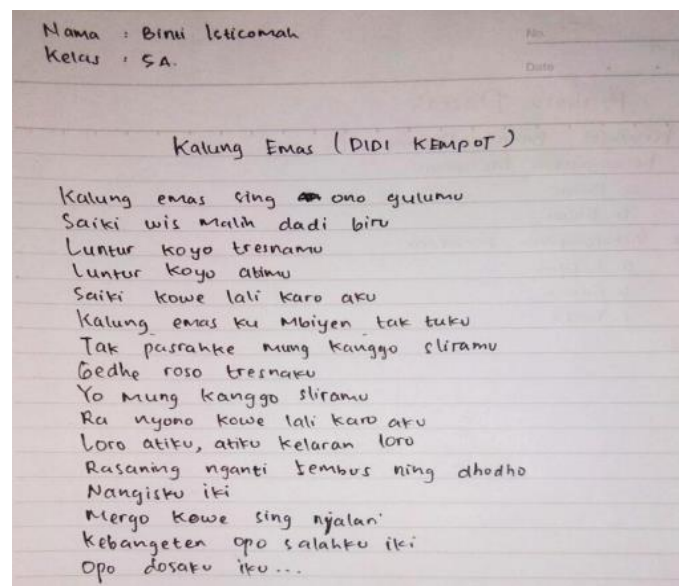 No.
Date
Nama : Binti Isticomah
Kelas : 5A.
Kalung Emas (DIDI KEMPOT)
Kalung emas sing ono gulumu
Saiki wis malih dadi biru
Luntur koyo tresnamu
Luntur koyo atimu
Saiki kowe lali karo aku
Kalung emas ku Mbiyen tak tuku
Tak pasrahke mung kanggo sliramu
Gedhe roso tresnaku
Yo mung kanggo sliramu
Ra nyono kowe lali karo aku
Loro atiku, atiku kelaran loro
Rasaning nganti tembus ning dhodho
Nangisku iki
Mergo kowe sing njalari
Kebangeten opo salahku iki
Opo dosaku iku...